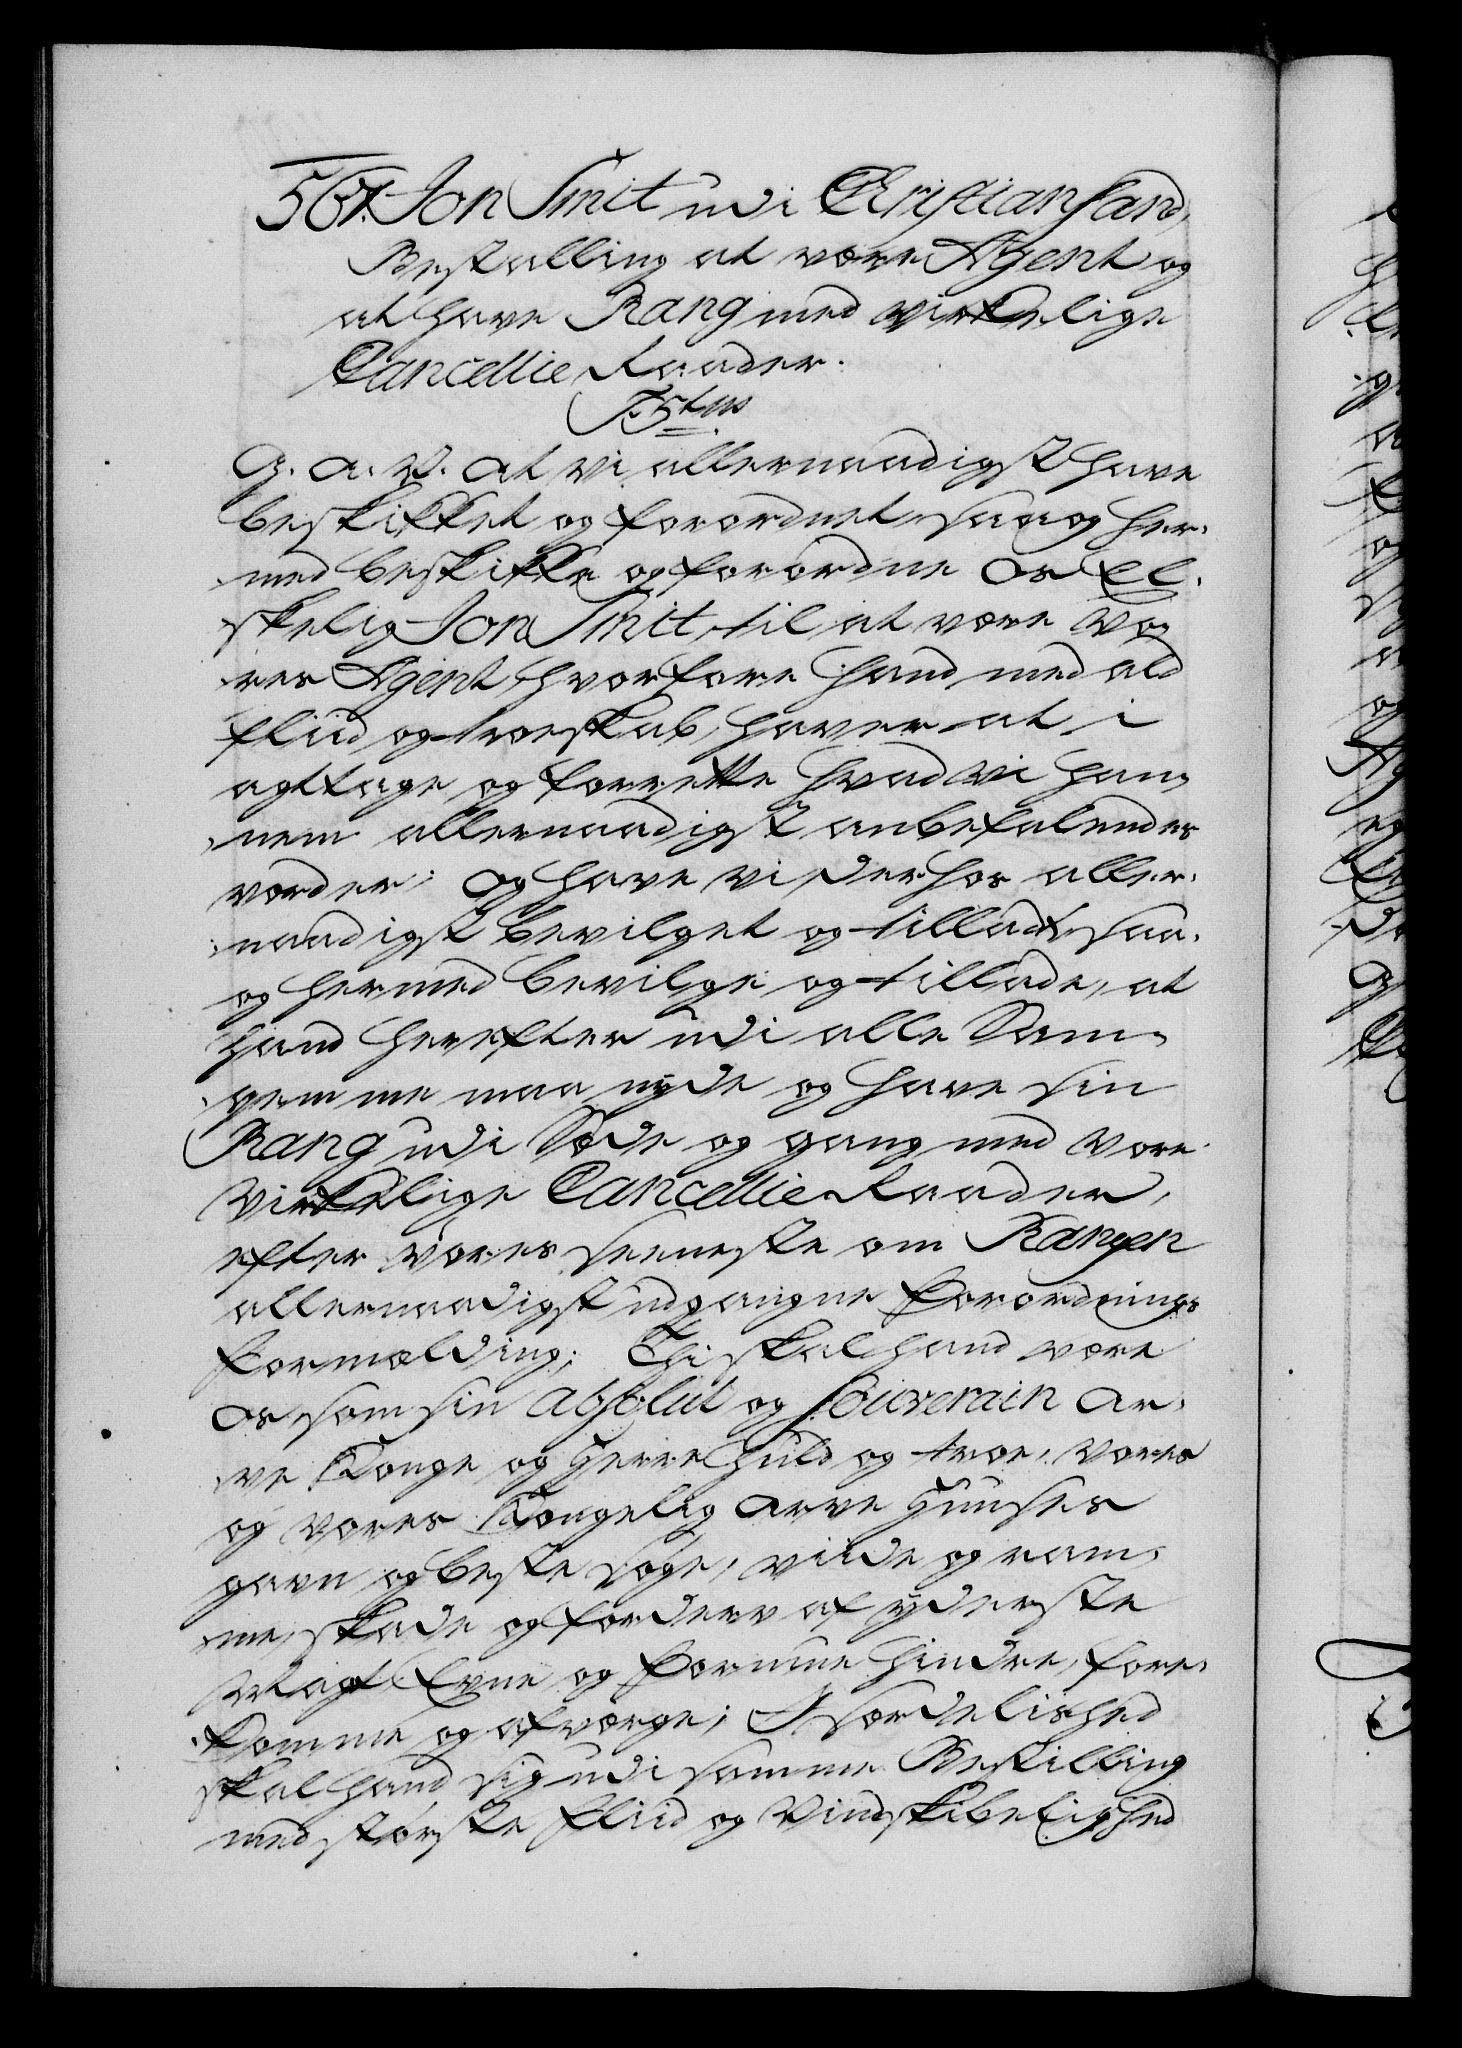 567. Jon Smit udi Christiansand,
Bestalling at være Agent og
at have Rang med virkelige
Cancellie Raader.
F. 5tus
G. A. V. At vi allernaadigst have
beskikket og forordnet, saa og her-
med beskikke og forordne Os El-
skelig Jon Smit, til at være Vo-
res Agent, hvorfore hand med ald
fliid og troeskab, haver at i
agttage og forrette hvad Vi han-
nem allernaadigst anbefalendes
vorder; Og have Vi derhos aller-
naadigst bevilget og tilladt, saa
og hermed bevilge og tillade, at
hand herefter udi alle Sam-
qvemme maa nyde og have sin
Rang udi Sæde og gang med Vore
Virkelige Cancellie Raader,
efter Vores seeneste om Rangen
allernaadigst udgangne Forordnings
Formælding; Thi skal hand være
Os som sin absolut og souverain Ar-
ve Konge og Herre huld og troe, Vores
og Vores Kongelig Arve Huuses
gavn og beste søge, viide og ram-
me, skade og forderv af yderste
Magt Evne og Formue hindre, fore-
komme og afværge; I særdelished
skal hand sig udi samme Bestilling
med største Fliid og Vindskibelighed